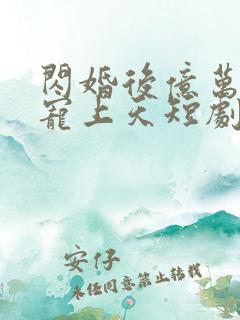 閃婚後億萬
寵上天短劇
安仔
未經同意禁止轉載